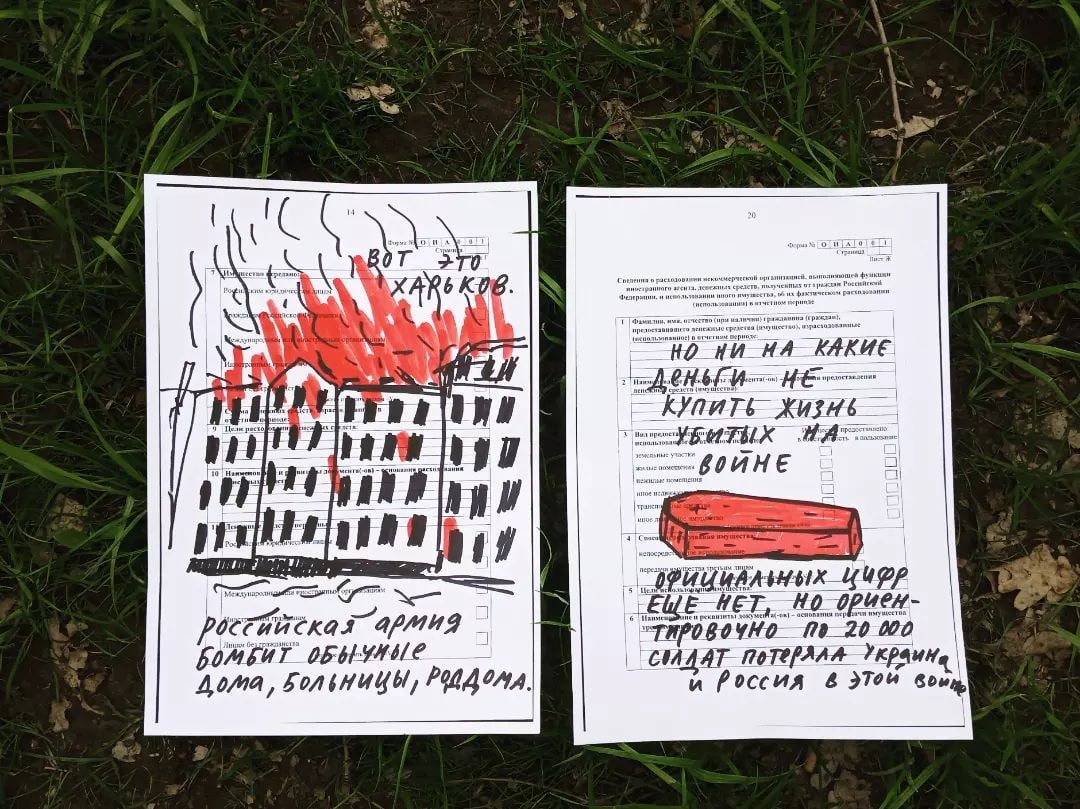 14
Форма № О И А 0 0 1
Страница
ВОТ ЭТО
ХАРЬКОВ.
7 Имущество передано:
Российским юридическим лицам
Гражданам Российской Федерации
Международным или иностранным организациям
Иностранным
9 Цели расходования денежных средств:
10 Наименование и реквизиты документа(-ов) – основания расходования
11
Российским юридическим лицам
Международным или иностранным организациям
Иностранным гражданам
Лицам без гражданства
РОССИЙСКАЯ АРМИЯ
БОМБИТ ОБЫЧНЫЕ
ДОМА, БОЛЬНИЦЫ, РОДДОМА.
20
Форма № О И А 0 0 1
Страница
Лист Ж
Сведения о расходовании некоммерческой организацией, выполняющей функции
иностранного агента, денежных средств, полученных от граждан Российской
Федерации, и использовании иного имущества, об их фактическом расходовании
(использовании) в отчетном периоде
1 Фамилия, имя, отчество (при наличии) гражданина (граждан),
предоставившего денежные средства (имущество), израсходованные
(использованное) в отчетном периоде:
НО НИ НА КАКИЕ
2 Наименование и реквизиты документа(-ов) – основания предоставления
денежных средств (имущества):
ДЕНЬГИ НЕ
КУПИТЬ ЖИЗНЬ
3 Вид
УБИТЫХ НА
в собственность в пользование
земельные участки
жилые помещения
ВОЙНЕ
нежилые помещения
иное недвижимое
транспортные средства
иное имущество
4 Способ использования имущества:
непосредственное использование
передача имущества третьим лицам
ОФИЦИАЛЬНЫХ ЦИФР
5 Цели использования имущества:
ЕЩЕ НЕТ, НО ОРИЕН-
6 Наименование и реквизиты документа(-ов) – основания передачи имущества
ТИРОВОЧНО ПО 20 000
СОЛДАТ ПОТЕРЯЛА УКРАИНА
И РОССИЯ В ЭТОЙ ВОЙНЕ